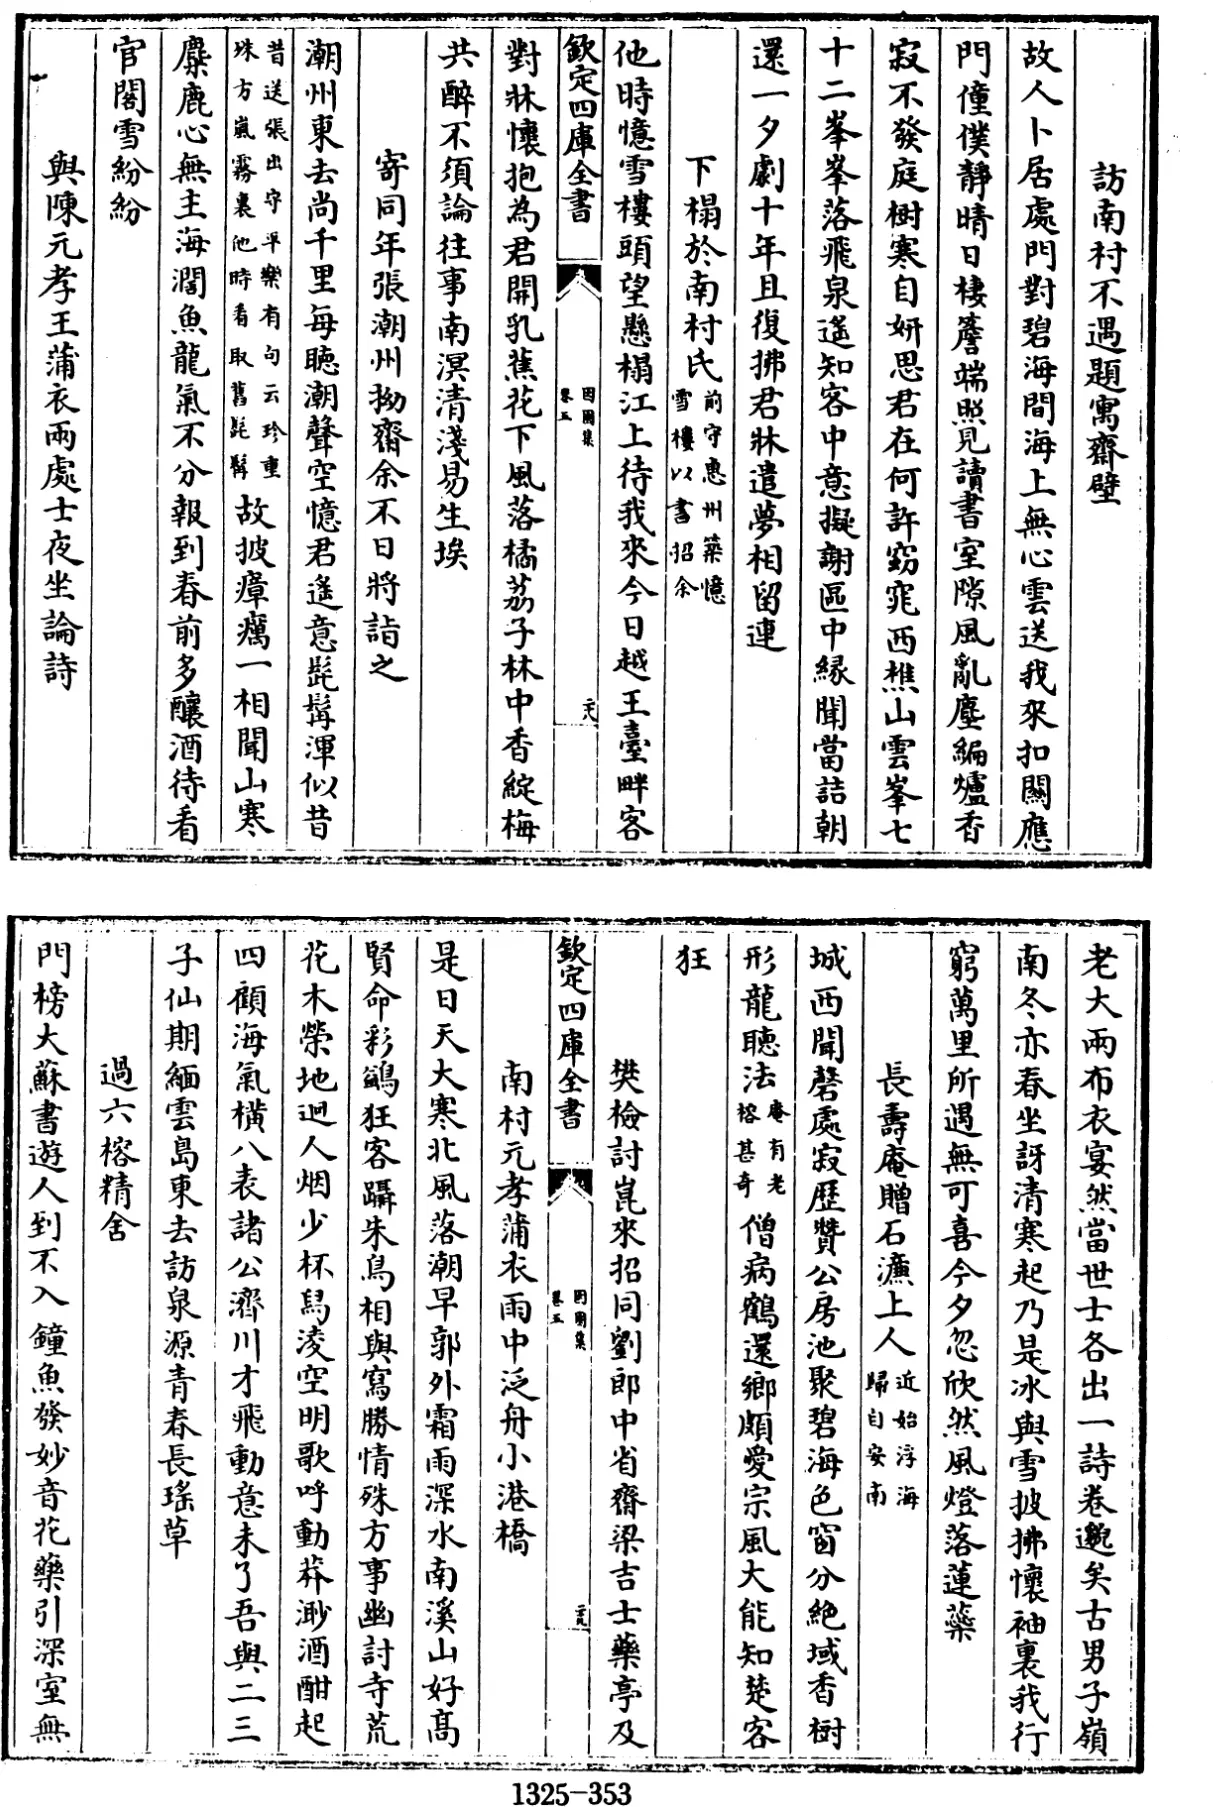 訪南村不遇題寓齋壁
故人卜居處門對碧海間海上無心雲送我來扣關應
門僮僕靜晴日棲簷端照見讀書室隙風亂塵編爐香
寂不發庭樹寒自妍思君在何許窈窕西樵山雲峯七
十二峯峯落飛泉遙知客中意擬謝區中緣聞當詰朝
還一夕劇十年且復拂君牀遣夢相留連
下榻於南村氏前守惠州築憶雪樓以書招余
他時憶雪樓頭望懸榻江上待我來今日越王臺畔客
欽定四庫全書
卷五
二十八
對牀懷抱為君開乳蕉花下風落橘荔子林中香綻梅
共醉不須論往事南溟清淺易生埃
寄同年張潮州拗齋余不日將詣之
潮州東去尚千里每聽潮聲空憶君遙意髭髯渾似昔
昔送張出守平樂有句云珍重珠方嵐霧裏他時看取舊髭髯故披瘴癘一相聞山寒
麋鹿心無主海濶魚龍氣不分報到春前多釀酒待看
官閣雪紛紛
與陳元孝王蒲衣兩處士夜坐論詩
老大兩布衣宴然當世士各出一詩卷邈矣古男子嶺
南冬亦春坐訝清寒起乃是冰與雪披拂懷袖裏我行
窮萬里所遇無可喜今夕忽欣然風燈落蓮蘂
長壽庵贈石濂上人近始浮海歸自安南
城西聞磬處寂歷贊公房池聚碧海色窗分絶域香樹
形龍聽法庵有老榕甚奇僧病鶴還鄉頗愛宗風大能知楚客
狂
樊檢討崑來招同劉郎中省齋梁吉士藥亭及
欽定四庫全書
卷五
二十九
南村元孝蒲衣雨中泛舟小港橋
是日天大寒北風落潮早郭外霜雨深水南溪山好高
賢命彩鷁狂客躡朱鳥相與寫勝情殊方事幽討寺荒
花木榮地迥人烟少杯舄凌空明歌呼動莽渺酒酣起
四顧海氣橫八表諸公濟川才飛動意未了吾與二三
子仙期緬雲島東去訪泉源青春長瑤草
過六榕精舍
門榜大蘇書遊人到不入鐘魚發妙音花藥引深室無
1325-353